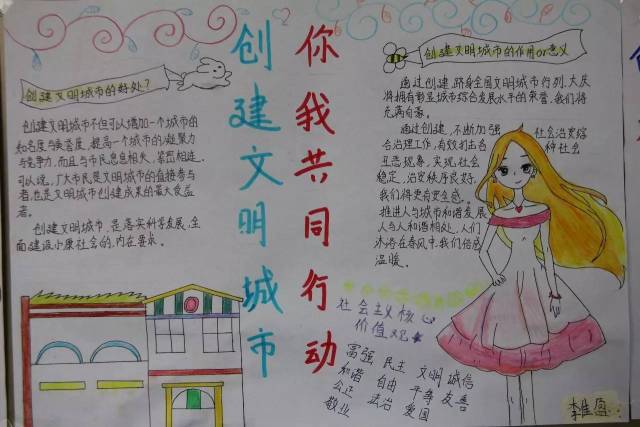 创建文明城市
你我共同行动
创建文明城市的好处?
创建文明城市不但可以增加一个城市的
知名度与美誉度,提高一个城市的凝聚力
与竞争力,而且与市民息息相关,紧密相连.
可以说,广大市民是文明城市的直接参与
者,也是文明城市创建成果的最大受益
者。
创建文明城市,是落实科学发展,全
面建设小康社会的,内在要求。
创建文明城市的作用or意义
通过创建,跻身全国文明城市行列,大庆
将拥有彰显城市综合发展水平的荣誉,我们将
充满自豪。
通过创建,不断加强社会治安综
合治理工作,有效打击各种社会
丑恶现象,实现社会
稳定,治安秩序良好,
我们得更有安全感。
推进人与城市和谐发展
人与人和谐相处,人们
沐浴在春风中,我们倍感
温暖。
社会主义核心
价值观
富强 民主 文明 诚信
和谐 自由 平等 友善
公正 法治 爱国
敬业